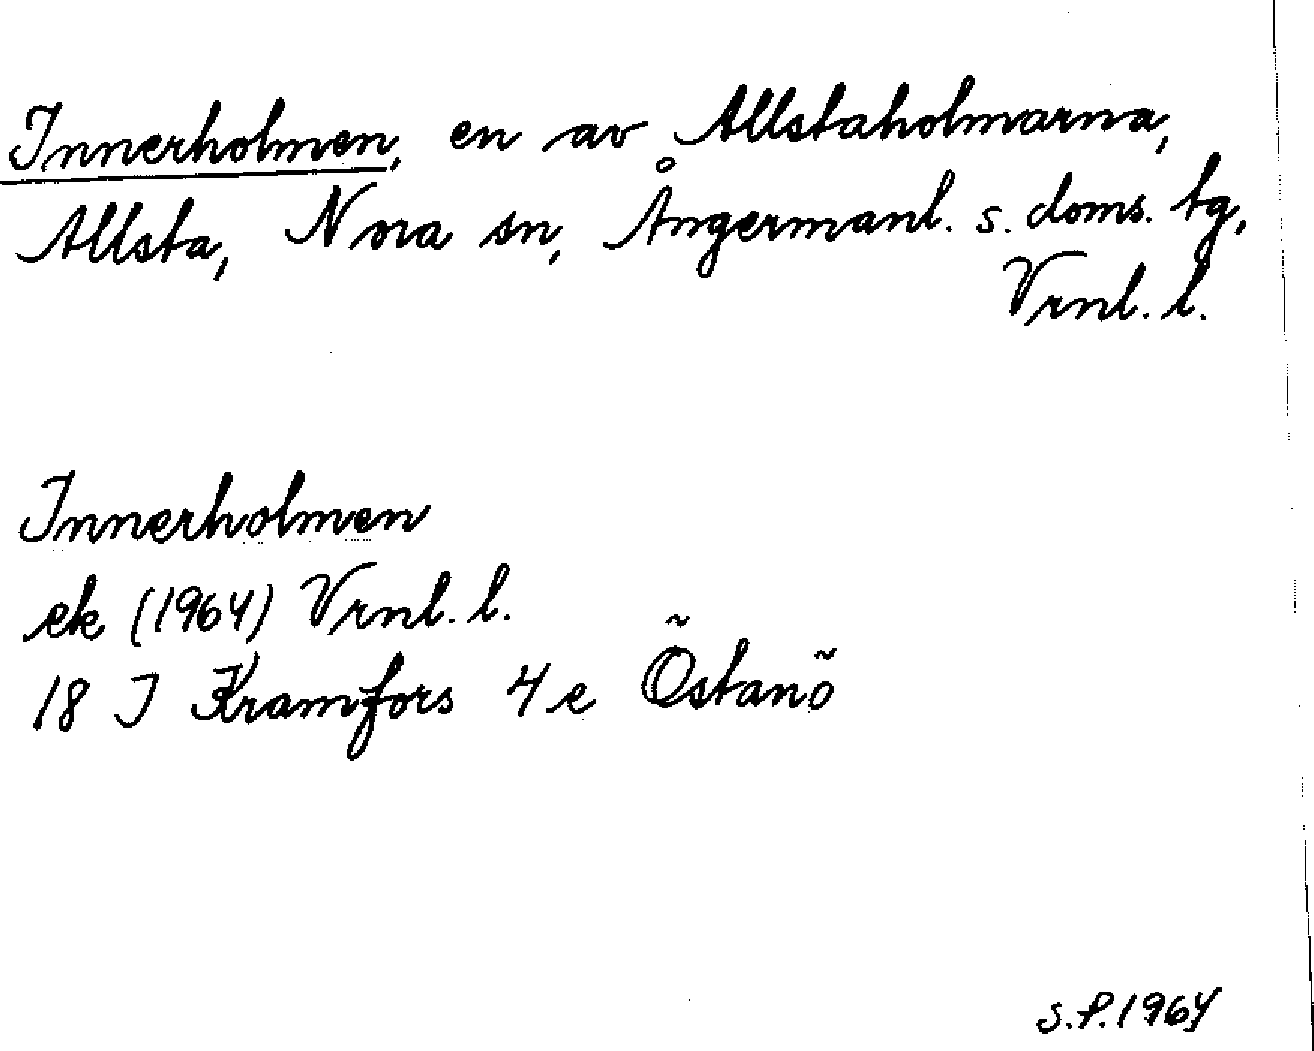 Innerholmen, en av Allstaholmarna,
Allsta, Nora sn, Ångermanl. s. doms. tg,
Vrnl. l.
Innerholmen
ek (1964) Vrnl. l.
18 J Kramfors 4 e Östanö
S.P. 1964